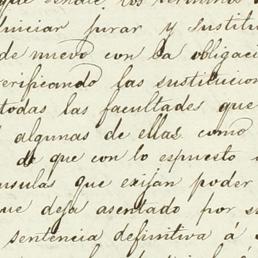 que desde, los terminos
iniciar jurar y sustitu
de nuevo con la obligaci
verificando las sustitucion
todas las facultades que
algunas de ellas como
de que con lo espuesto
nsula que exijan poder
ue deja asentado por s
sentencia definitiva á